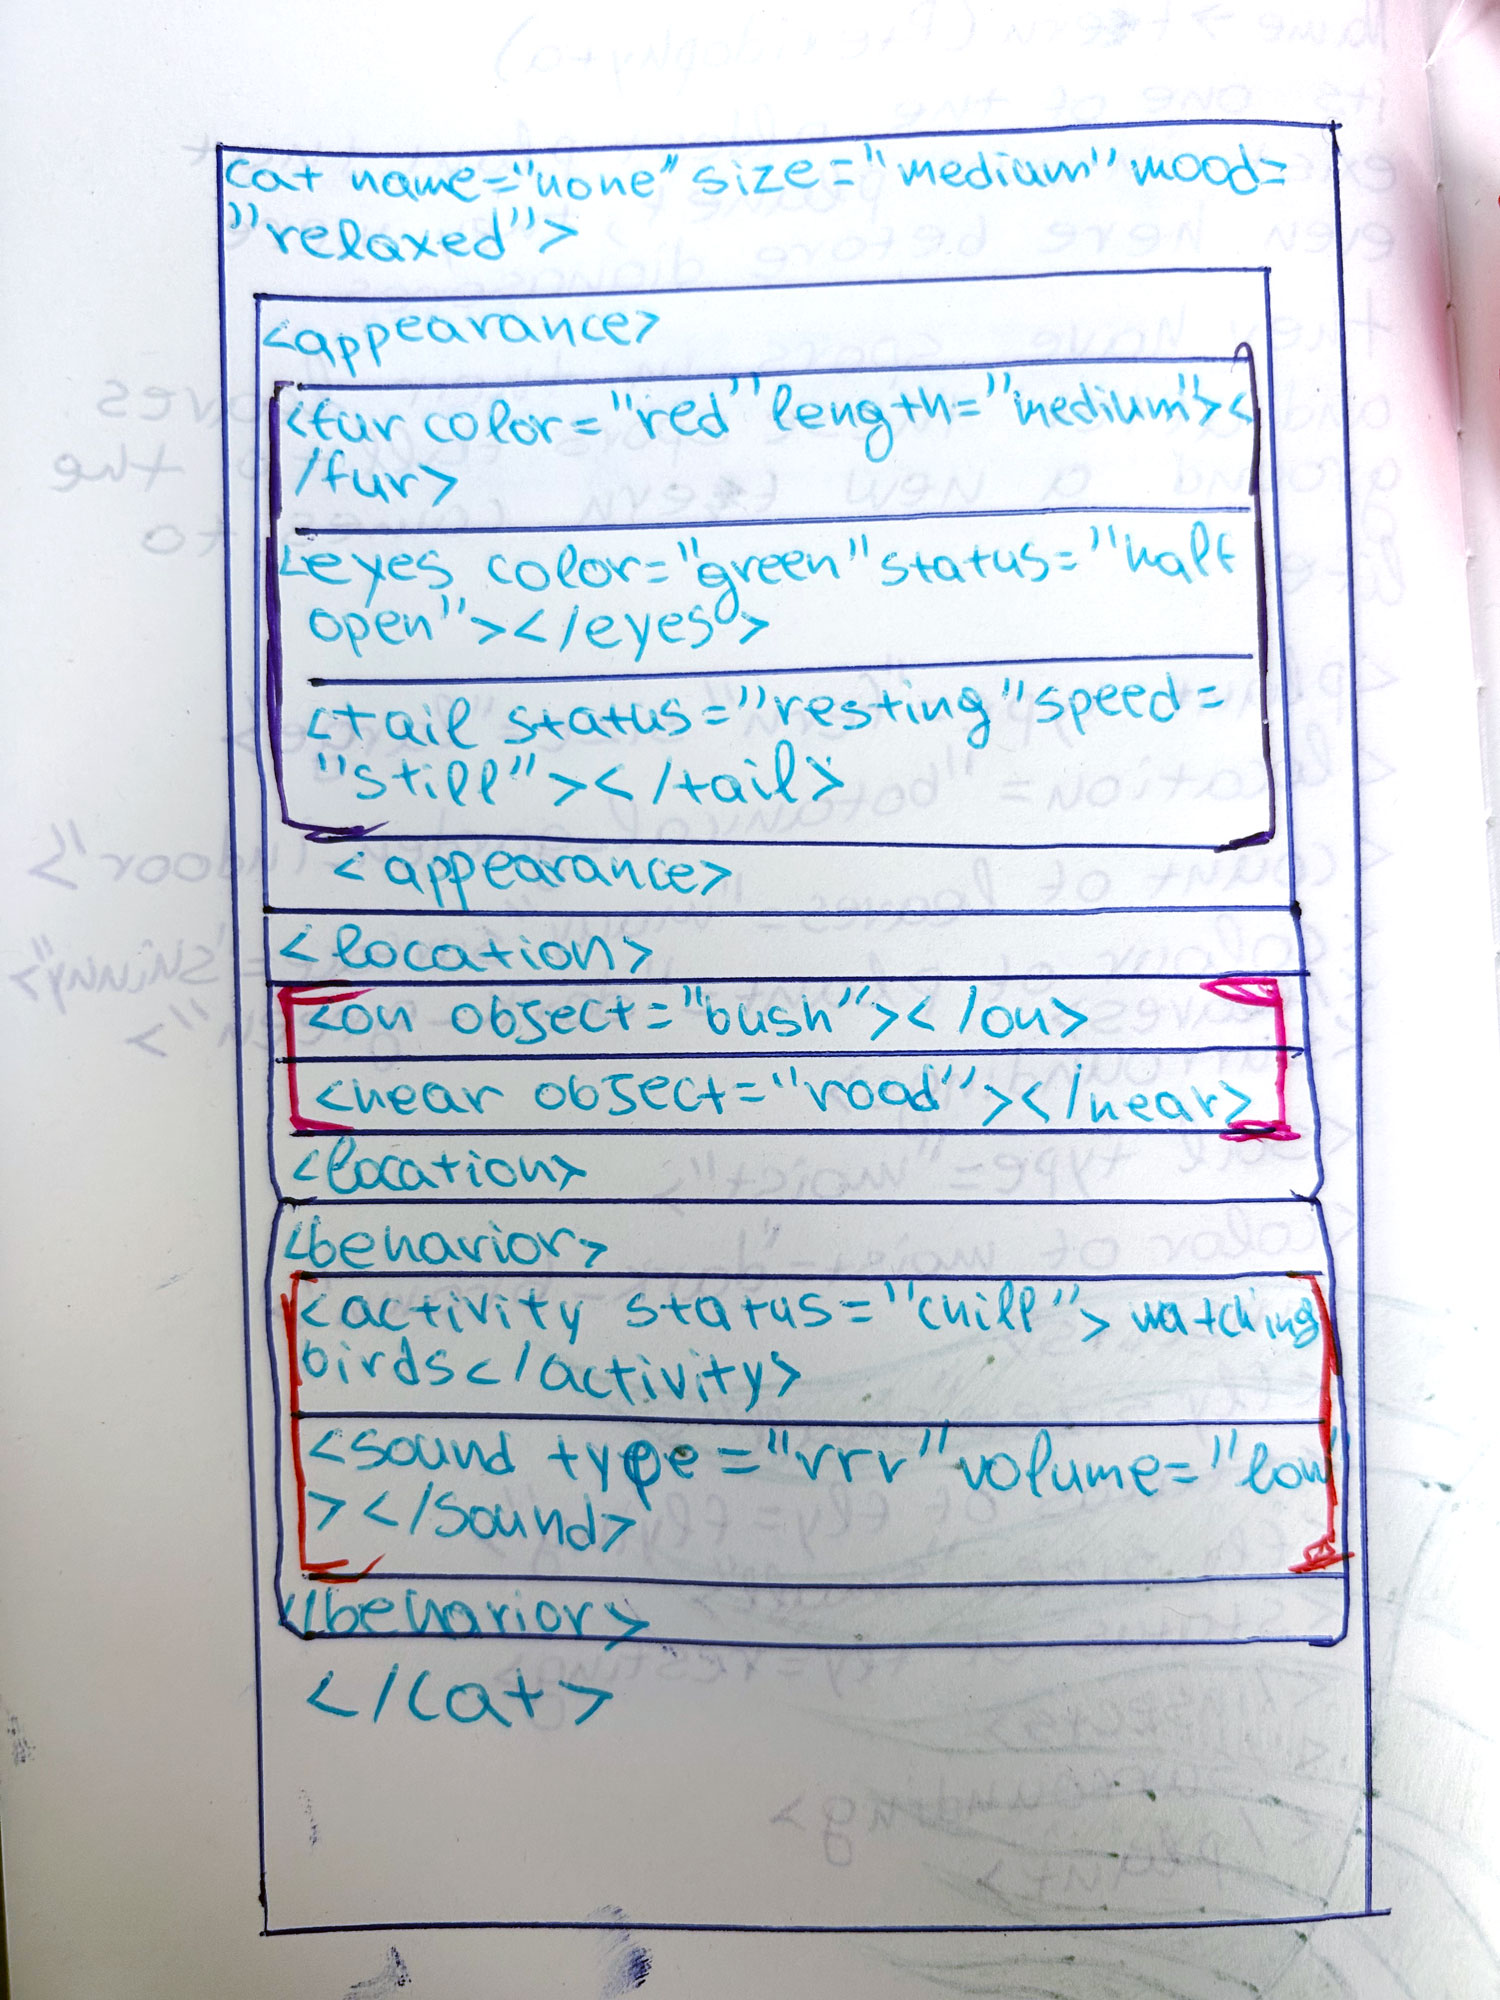 cat name="none" size="medium" mood=
"relaxed">
<appearance>
<fur color="red" length="medium"><
/fur>
<eyes color="green" status="half
open"></eyes>
<tail status="resting" speed=
"still"></tail>
<appearance>
<location>
<on object="bush"></on>
<near object="road"></near>
<location>
<behavior>
<activity status="chill"> watching
birds</activity>
<sound type="rrr" volume="low"
></sound>
</behavior>
</cat>